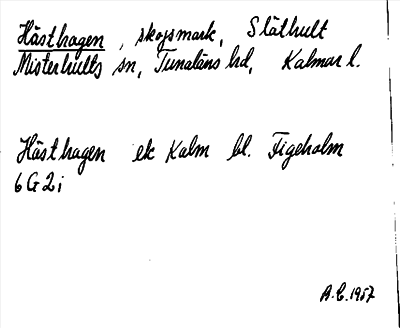 Hästhagen, skogsmark, Släthult
Misterhults sn, Tunaläns hd, Kalmar l.
Hästhagen ek Kalm bl. Figeholm
6G2i
A.C. 1957